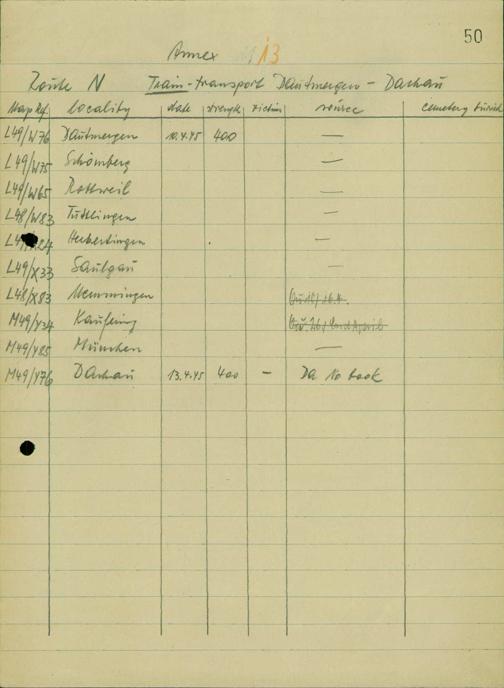 50
Annex 13
Route N Train-transport Dautmergen – Dachau
Map Ref. locality date strength victims source cemetery burial
L49/W76 Dautmergen 10.4.45 400 —
L49/W75 Schömberg —
L49/W65 Rottweil —
L48/W83 Tuttlingen —
Herbertingen —
L49/X33 Saulgau —
L48/X83 Memmingen
M49/Y34 Kaufering
M49/Y85 München —
M49/Y76 Dachau 13.4.45 400 – Da No book